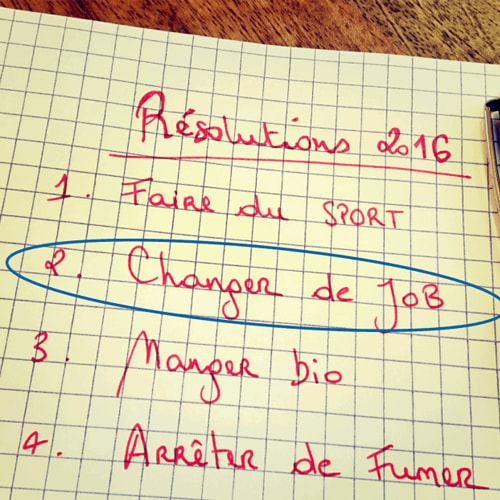 Résolutions 2016
1. Faire du SPORT
2. Changer de JOB
3. Manger bio
4. Arrêter de Fumer